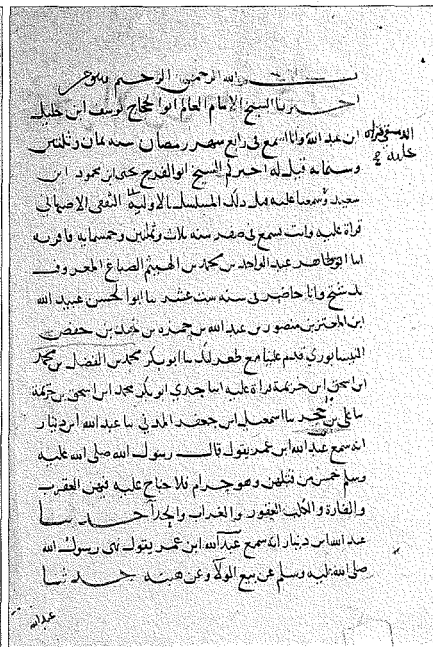 بسم الله الرحمن الرحيم
اخبرنا الشيخ الامام العالم ابو الحجاج يوسف ابن خليل
ابن عبد الله وانا اسمع في رابع شهر رمضان سنه ثمان وثلثين
وستمايه قيل له اخبركم الشيخ ابو الفرج يحيى ابن محمود ابن
سعيد وسمعنا عليه قبل ذلك المسلسل بالاوليه الثقفي الاصبهاني
قراة عليه وانت تسمع في صفر سنه ثلاث وثمنين وخمسمايه فاقر به
انا ابو طاهر عبد الواحد بن محمد بن الهيثم الصباغ المعروف
بدشتج وانا حاضر في سنه ست عشر نا ابو الحسن عبيد الله
ابن المعتز بن منصور بن عبد الله بن حمزه بن
النيسابوري قدم علينا مع نا ابو بكر محمد بن الفضل بن محمد
ابن اسحق ابن خزيمة قراة عليه انا جدي ابو بكر محمد ابن اسحق بن خزيمة
نا علي بن حجر نا اسمعيل ابن جعفر المدني نا عبد الله ابن دينار
انه سمع عبد الله ابن عمر يقول قال رسول الله صلى الله عليه
وسلم خمس من قتلهن وهو حرام فلا جناح عليه فيهن العقرب
والفارة والكلب العقور والغراب والحدأ حدثنا
عبد الله ابن دينار انه سمع عبد الله ابن عمر يقول نهى رسول الله
صلى الله عليه وسلم عن بيع الولآ وعن هبته حدثنا
عبد الله